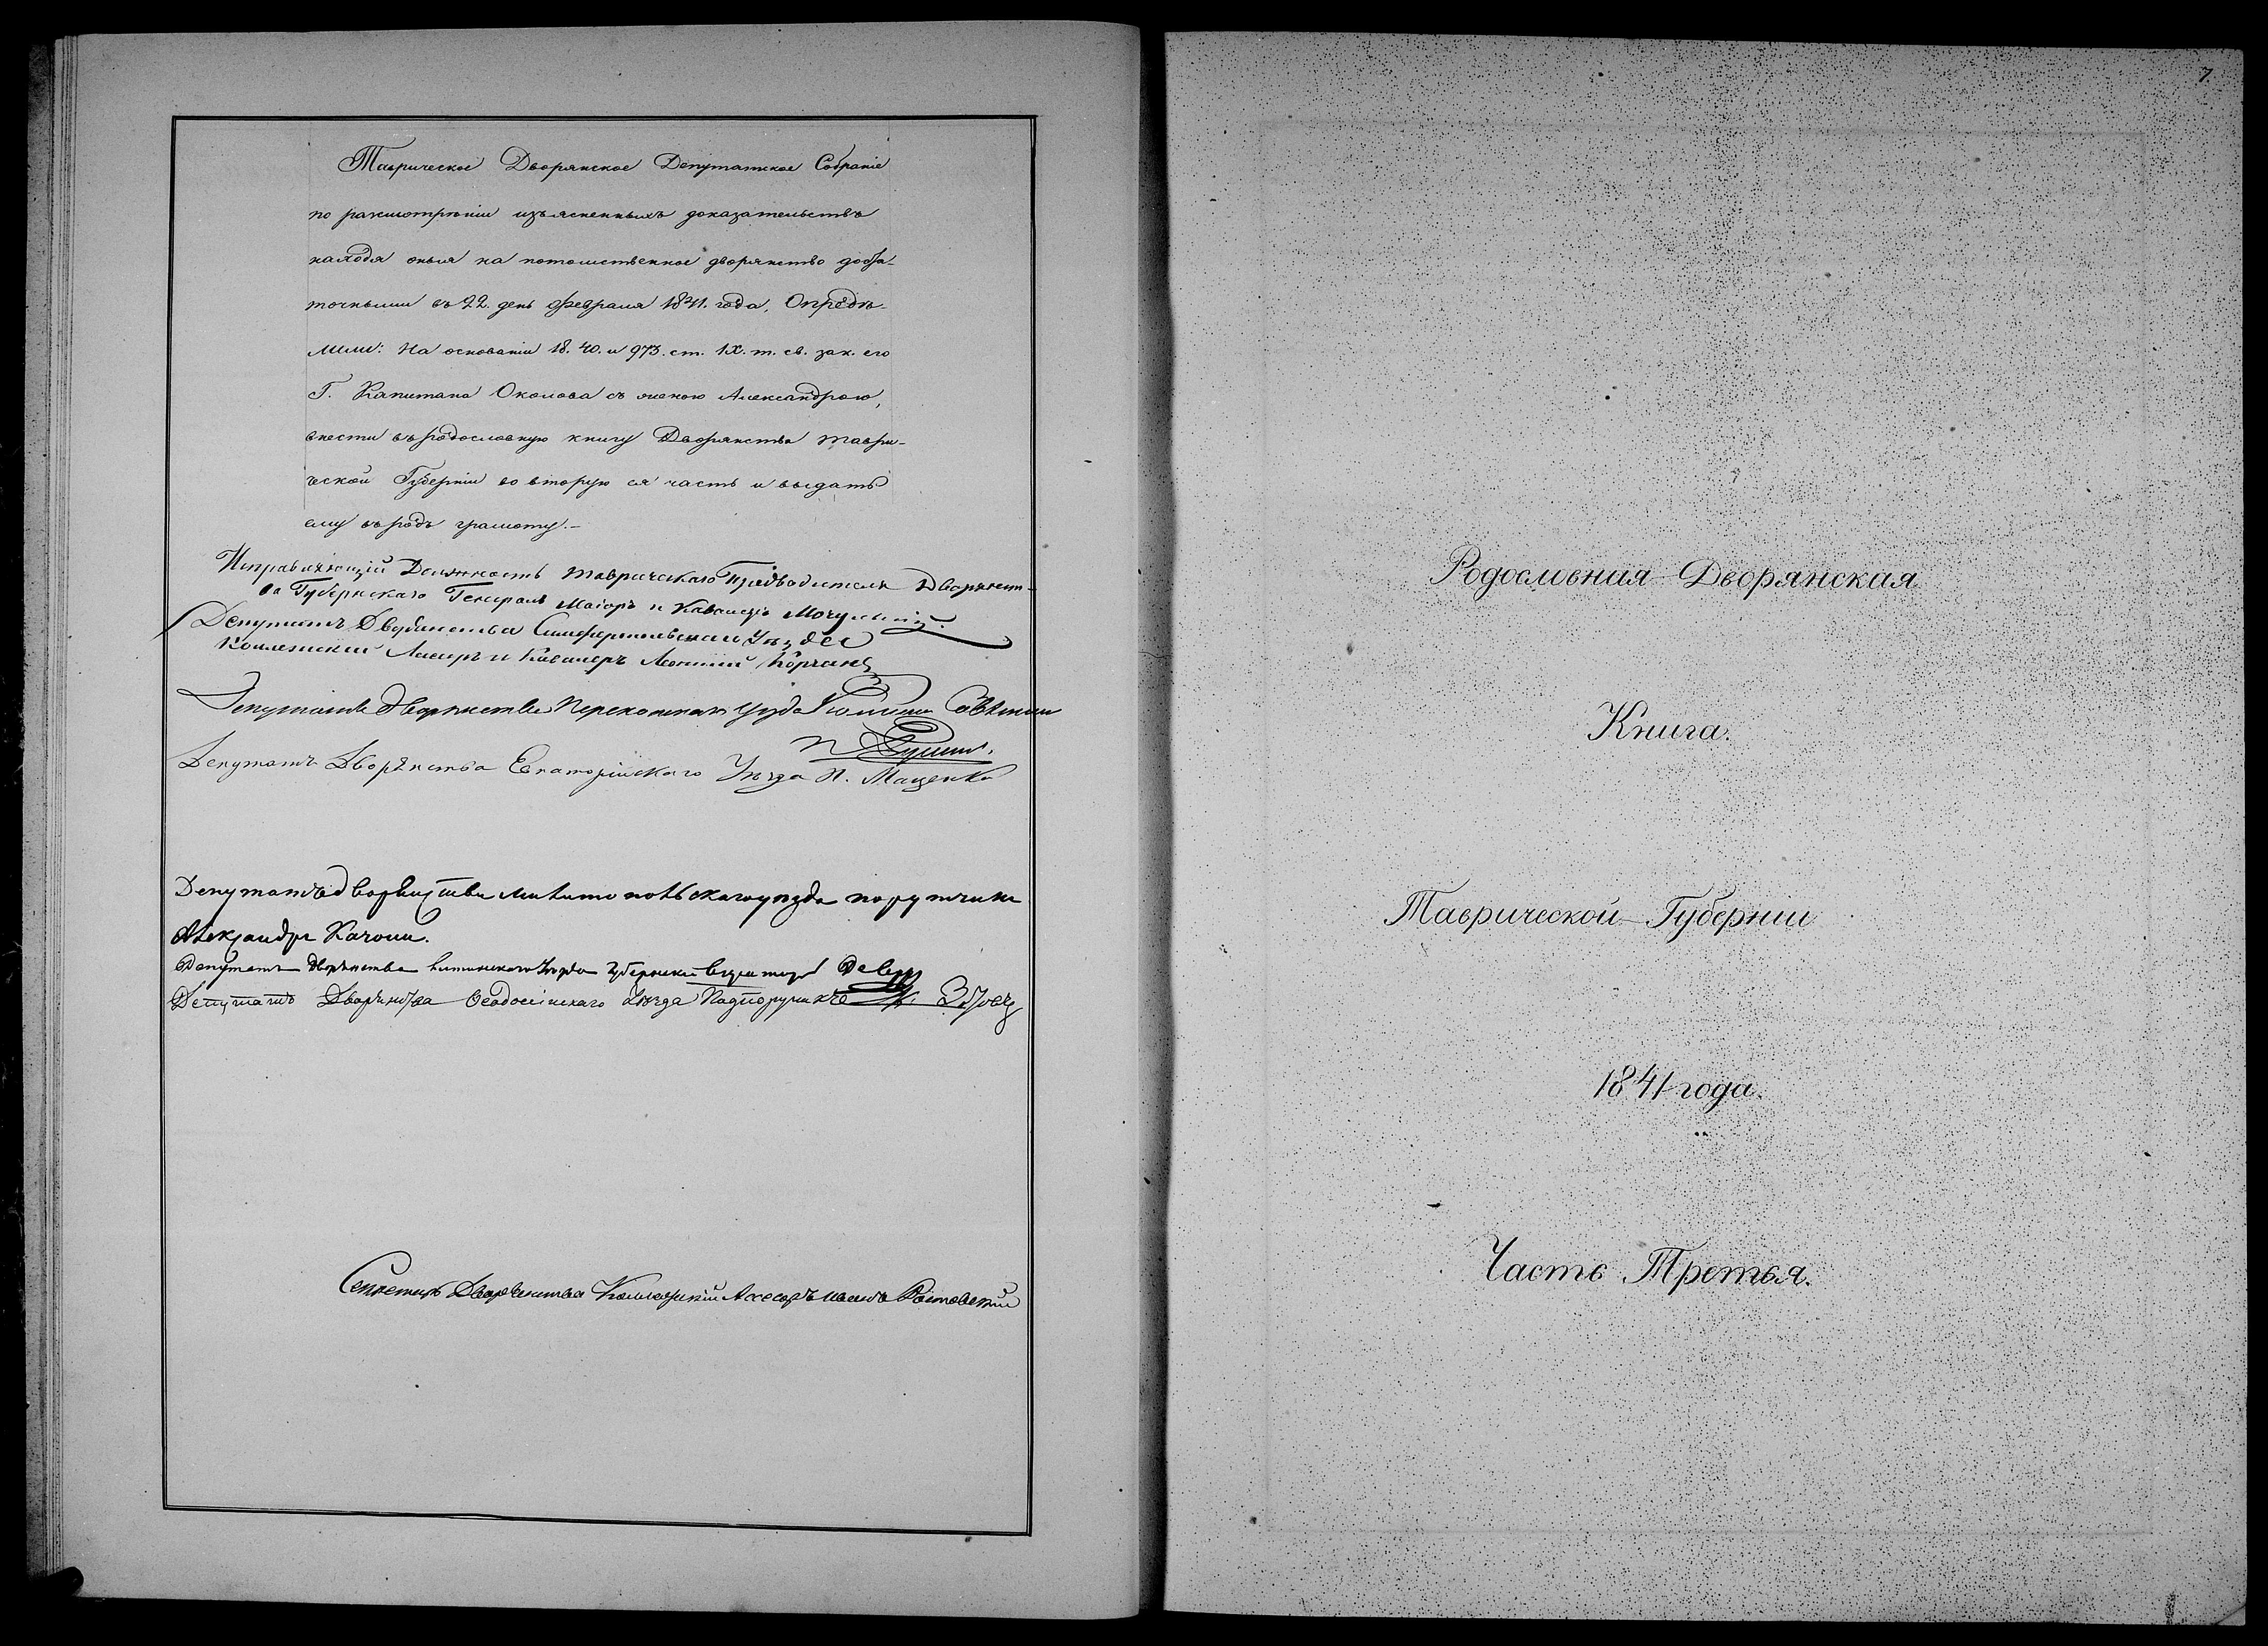 Таврическое Дворянское Депутатское Собраніе
по разсмотрѣніи изъясненныхъ доказательствъ
находя оныя на потомственное дворянство доста-
точными въ 22. день февраля 1841. года, Опредѣ-
лили: На основаніи 18. 40. и 973. ст. IX. т. св. зак. его
Г. Капитана Околова съ женою Александрою,
внести въ родословную книгу Дворянства Таври-
ческой Губерніи во вторую ея часть и выдать
ему въ родъ грамоту.-
Исправляющій Должность Таврическаго Предводителя Дворянст-
ва Губернскаго Генералъ Маіоръ и Кавалеръ
Депутатъ Дворянства Симферопольскаго Уѣзда
Коллежскій и Кавалеръ
Депутатъ Дворянства Перекопскаго уѣзда
Депутатъ Дворянства Евпаторійскаго Уѣзда П. Маценко
Депутатъ дворянства Мелитопольскаго уѣзда поручикъ
Александръ Качони.
Депутатъ Дворянства Ялтинскаго Уѣзда Губернскій
Депутатъ Дворянства Ѳеодосійскаго Уѣзда Подпоручикъ
Секретарь Дворянства Коллежскій Ассесоръ Ростовскій
7.
Родословная Дворянская
Книга.
Таврической Губерніи
1841 года.
Часть Третья.